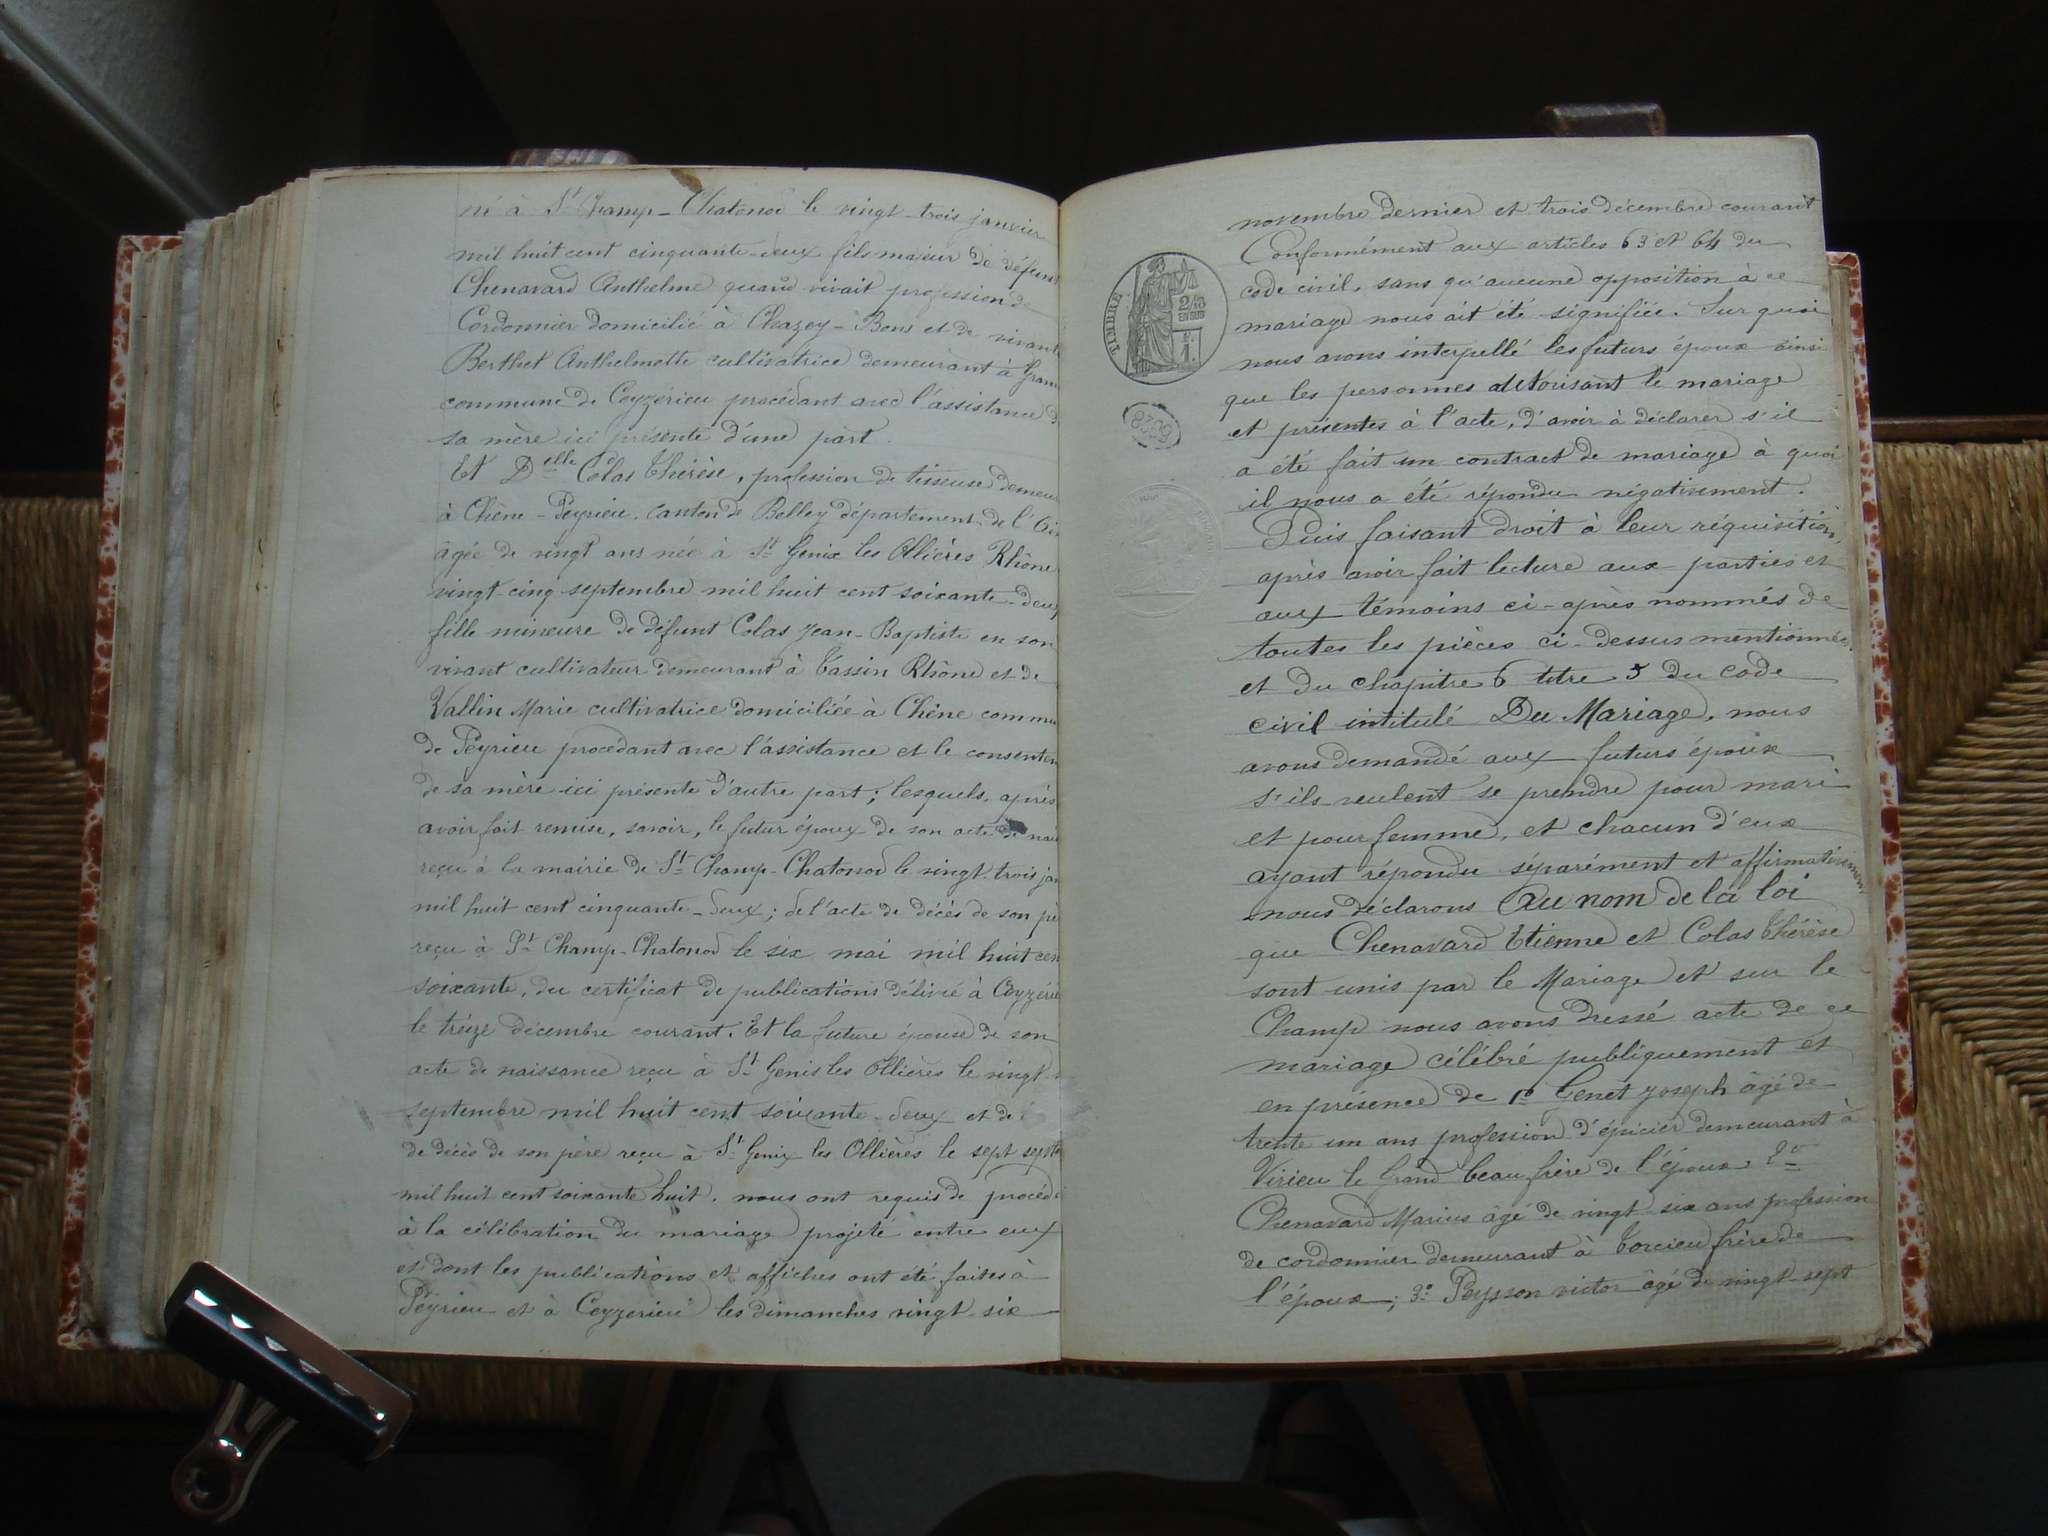 né à St Champ-Chatonod le vingt-trois janvier
mil huit cent cinquante-deux fils majeur de défunt
Chenavard Anthelme quand vivait profession de
Cordonnier domicilié à Chazey-Bons et de vivante
Berthet Anthelmette cultivatrice demeurant à
commune de Ceyzérieu procédant avec l'assistance d
sa mère ici présente d'une part.
Et Delle Colas Thérèse, profession de tisseuse demeu
à Chêne-Peyrieu, canton de Belley département de l'Ain
âgée de vingt ans née à St Genix les Ollières Rhône
vingt-cinq septembre mil huit cent soixante-deux
fille mineure de défunt Colas Jean-Baptiste en son
vivant cultivateur demeurant à Tassin Rhône et de
Vallin Marie cultivatrice domiciliée à Chêne commu
de Peyrieu procédant avec l'assistance et le consentem
de sa mère ici présente d'autre part; lesquels, après
avoir fait remise, savoir, le futur époux de son acte de nais
reçu à la mairie de St Champ-Chatonod le vingt-trois jan
mil huit cent cinquante-deux; de l'acte de décès de son pè
reçu à St Champ-Chatonod le six mai mil huit cen
soixante, du certificat de publications délivré à Ceyzérie
le treize décembre courant. Et la future épouse de son
acte de naissance reçu à St Genis les Ollières le vingt-
septembre mil huit cent soixante-deux et de
de décès de son père reçu à St Genix les Ollières le sept septe
mil huit cent soixante huit, nous ont requis de procéde
à la célébration du mariage projeté entre eux
et dont les publications et affiches ont été faites à
Peyrieu et à Ceyzerieu les dimanches vingt-six
novembre dernier et trois décembre courant
Conformément aux articles 63 et 64 du
code civil, sans qu'aucune opposition à ce
mariage nous ait été signifiée. Sur quoi
nous avons interpellé les futurs époux ainsi
que les personnes autorisant le mariage
et présentes à l'acte, d'avoir à déclarer s'il
a été fait un contract de mariage à quoi
il nous a été répondu négativement.
Puis faisant droit à leur réquisition,
après avoir fait lecture aux parties et
aux témoins ci-après nommés de
toutes les pièces ci-dessus mentionnées
et du chapitre 6 titre 5 du code
civil intitulé Du Mariage, nous
avons demandé aux futurs époux
s'ils veulent se prendre pour mari
et pour femme, et chacun d'eux
ayant répondu séparément et affirmativement
nous déclarons Au nom de la loi
que Chenavard Etienne et Colas Thérèse
sont unis par le Mariage et sur le
Champ nous avons dressé acte de ce
mariage célébré publiquement et
en présence de 1o Genet Joseph âgé de
trente un ans profession d'épicier demeurant à
Virieu le Grand beau frère de l'époux 2o
Chenavard Marius âgé de vingt-six ans profession
de cordonnier demeurant à Torcieu frère de
l'époux; 3o Peysson victor âgé de vingt-sept
TIMBRE
2/10
EN SUS
1.